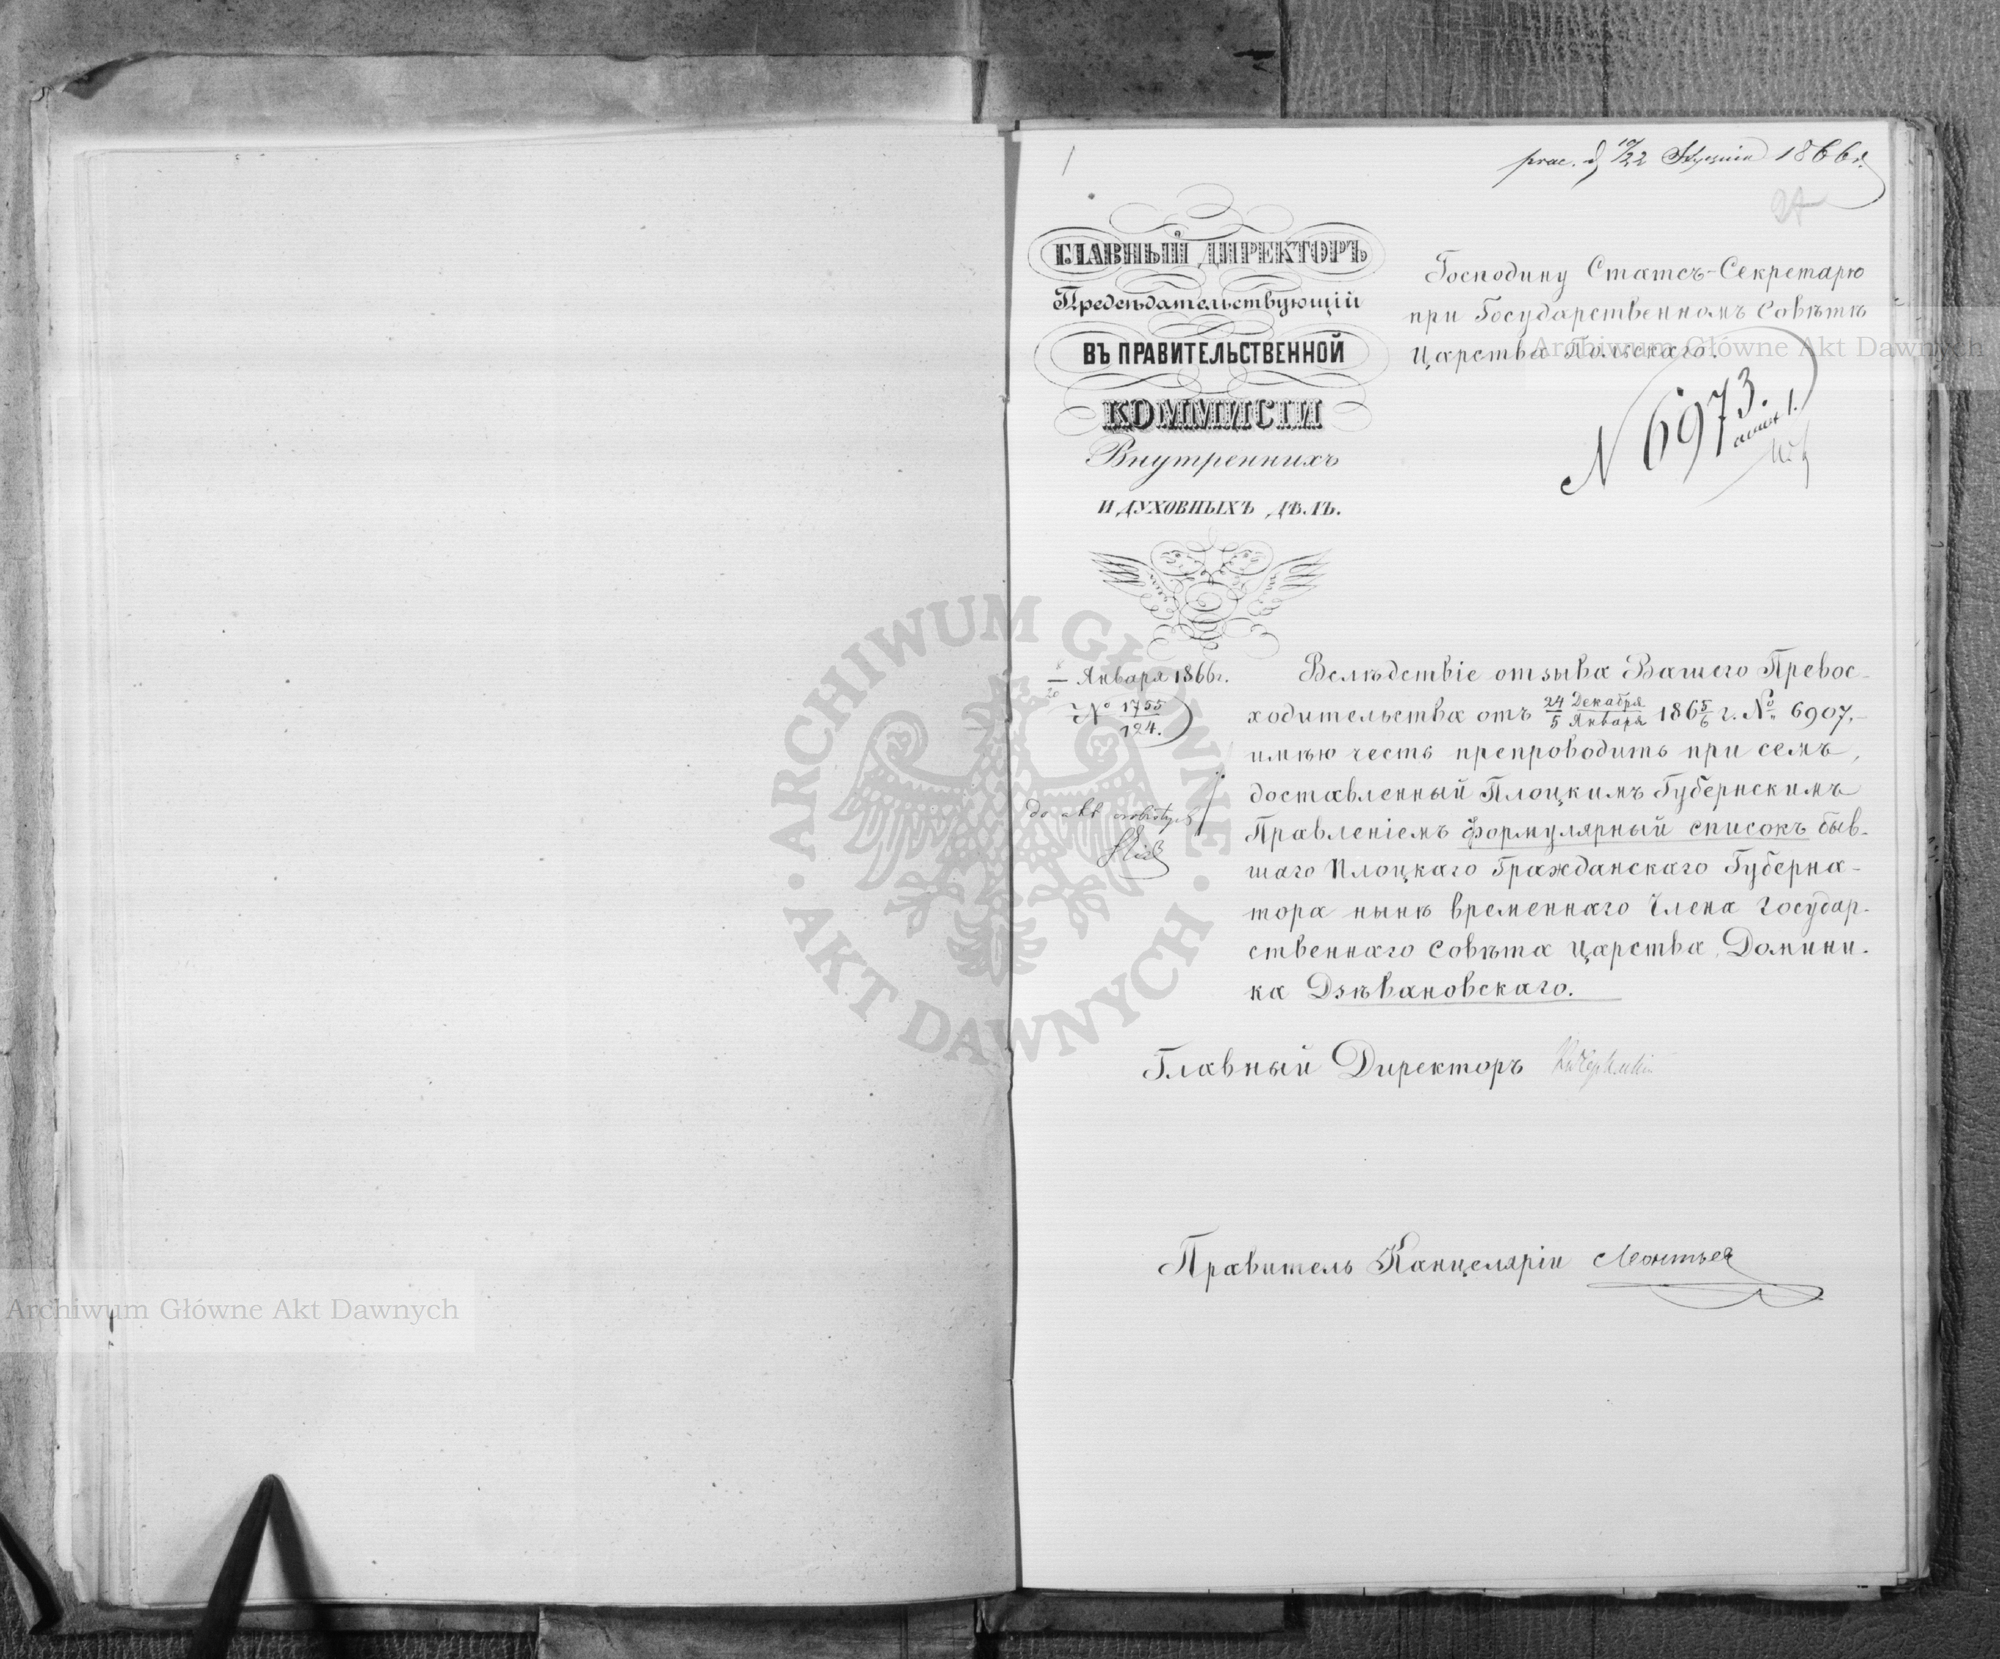 1
prae. d. 10/22 Stycznia 1866 r.
27
ГЛАВНЫЙ ДИРЕКТОРЪ
Предсѣдательствующій
ВЪ ПРАВИТЕЛЬСТВЕННОЙ
КОММИСІИ
Внутреннихъ
И ДУХОВНЫХЪ ДѢЛЪ.
Господину Статсъ-Секретарю
при Государственномъ Совѣтѣ
Царства Польскаго.
N 6973.
8/20 Января 1866 г.
№ 1755/124.
do akt osobistych
Вслѣдствіе отзыва Вашего Превос-
ходительства отъ 24/5 Декабря/Января 1865/6 г. № 6907,
имѣю честь препроводить при семъ,
доставленный Плоцкимъ Губернскимъ
Правленіемъ формулярный списокъ быв-
шаго Плоцкаго Гражданскаго Губерна-
тора нынѣ временнаго Члена Государ-
ственнаго Совѣта Царства, Домини-
ка Дзѣвановскаго.
Главный Директоръ
Правитель Канцеляріи Леонтьев
ARCHIWUM GŁÓWNE AKT DAWNYCH
Archiwum Główne Akt Dawnych
Archiwum Główne Akt Dawnych